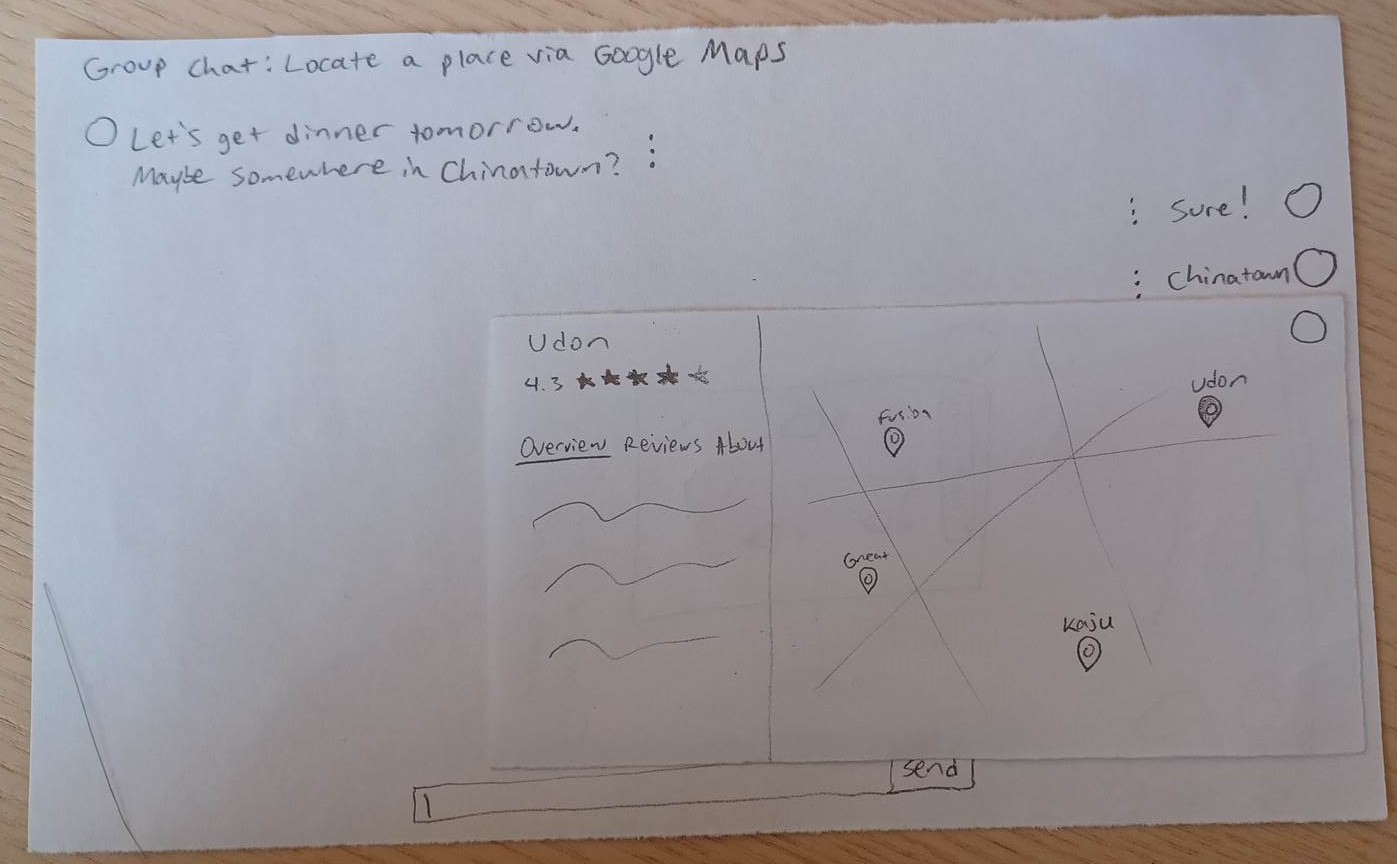 Group Chat: Locate a place via Google Maps
Let's get dinner tomorrow.
Maybe somewhere in Chinatown?
Sure!
Chinatown
Udon
4.3
Overview Reviews About
Fusion
Udon
Great
Kaju
send